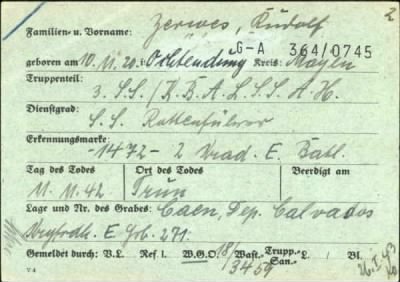 2
Familien- u. Vorname: Zerwes, Rudolf
G-A 364/0745
geboren am 10.11.20. i. Ochtendung Kreis: Mayen
Truppenteil:
3. S.S./K.B.A.L.S.S.A.H.
Dienstgrad:
S.S. Rottenführer
Erkennungsmarke:
-1472- 2 E. Batl.
Tag des Todes Ort des Todes Beerdigt am
11.11.42 Trun
Lage und Nr. des Grabes: Caen, Dep. Calvados
E. Grb. 271.
Gemeldet durch: V.L. Ref I. W.G.O. 18/3459 Wast.- Trupp.- San.- L. / Bl.
26.I.43
V 4